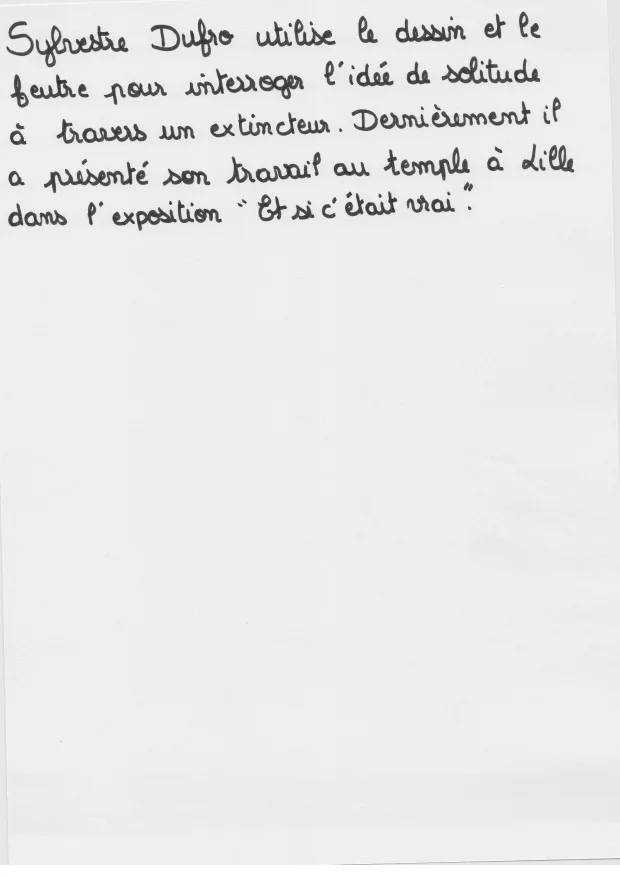 Sylvestre Dufro utilise le dessin et le
feutre pour interroger l'idée de solitude
à travers un extincteur. Dernièrement il
a présenté son travail au temple à Lille
dans l'exposition "Et si c'était vrai".